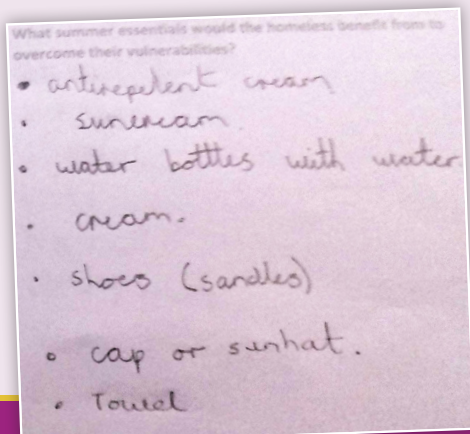 What summer essentials would the homeless benefit from to
overcome their vulnerabilities?
• antirepelent cream
• suncream
• water bottles with water
• cream.
• shoes (sandles)
• cap or sunhat.
• Towel